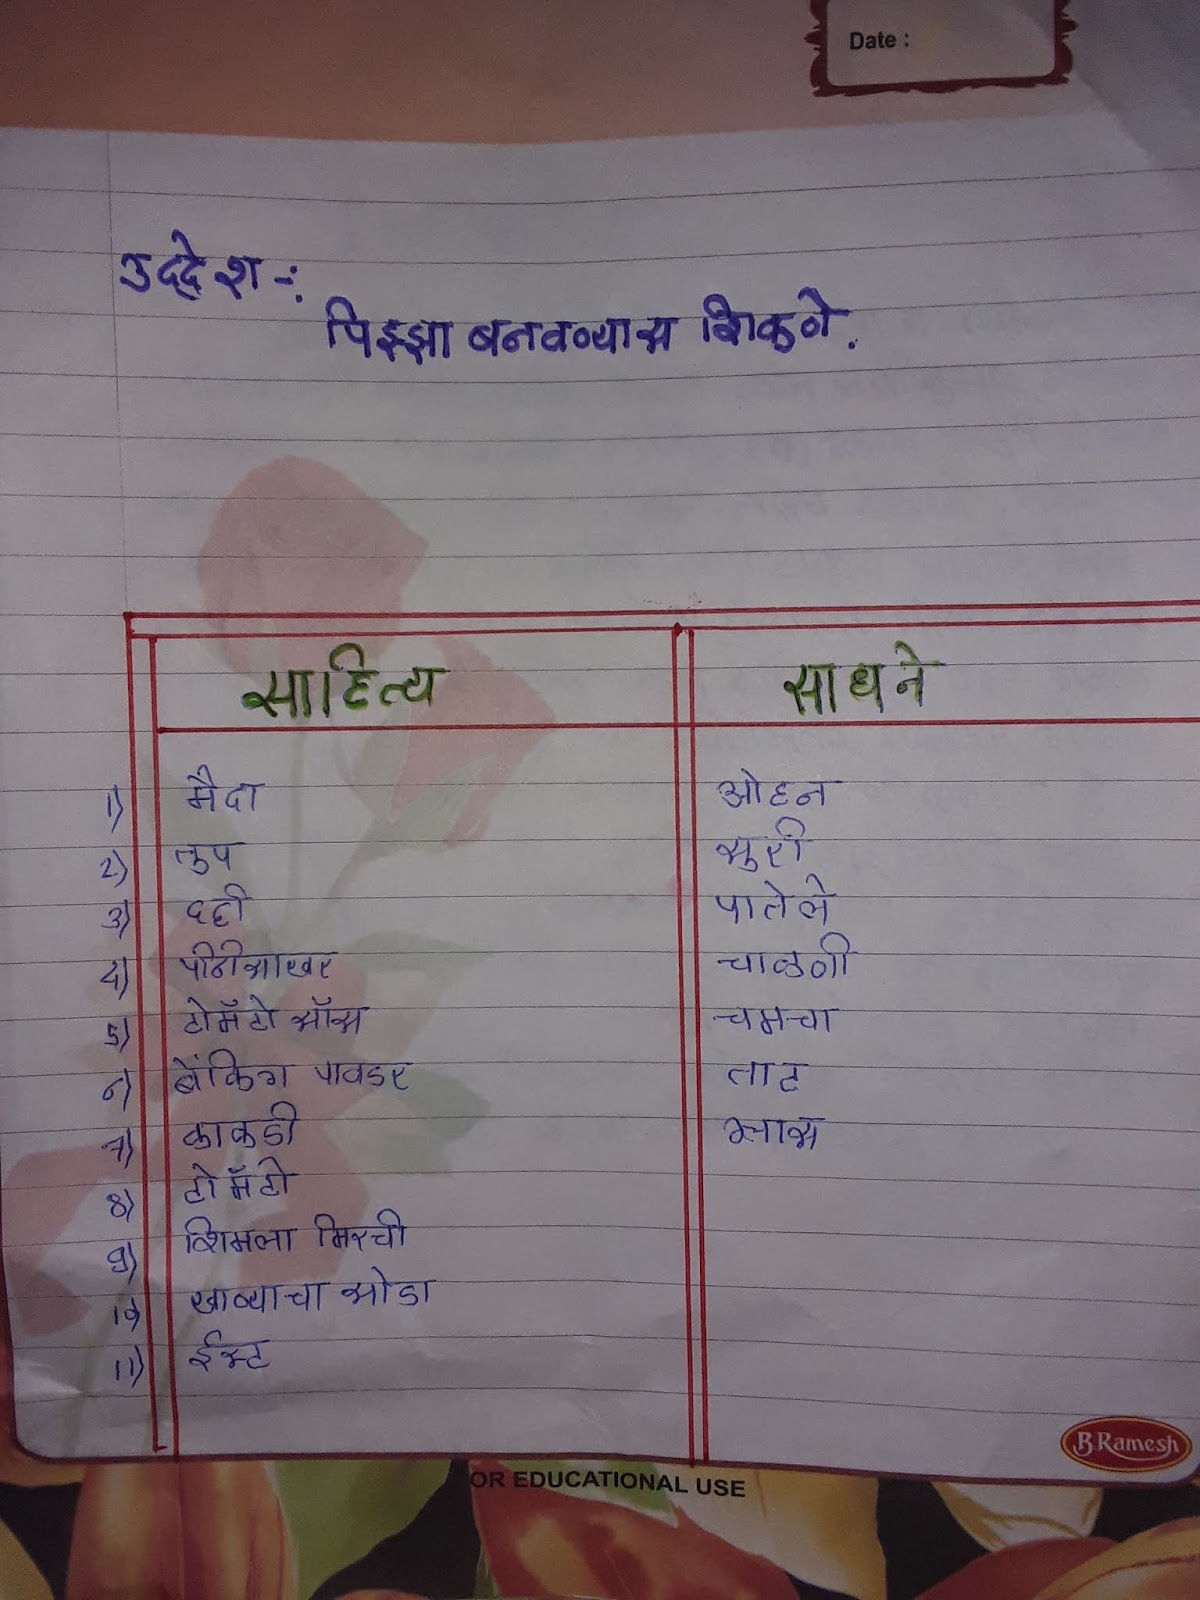 Date :
उद्देश -:
पिझ्झा बनवण्यास शिकणे.
साहित्य साधने
1) मैदा ओहन
2) तुप सुरी
3) दही पातेले
4) पीठीसाखर चाळणी
5) टोमॅटो सॉस चमचा
6) बेंकिंग पावडर ताट
7) काकडी ग्लास
8) टोमॅटो
9) शिमला मिरची
10) खाव्याचा सोडा
11) ईस्ट
B.Ramesh
OR EDUCATIONAL USE